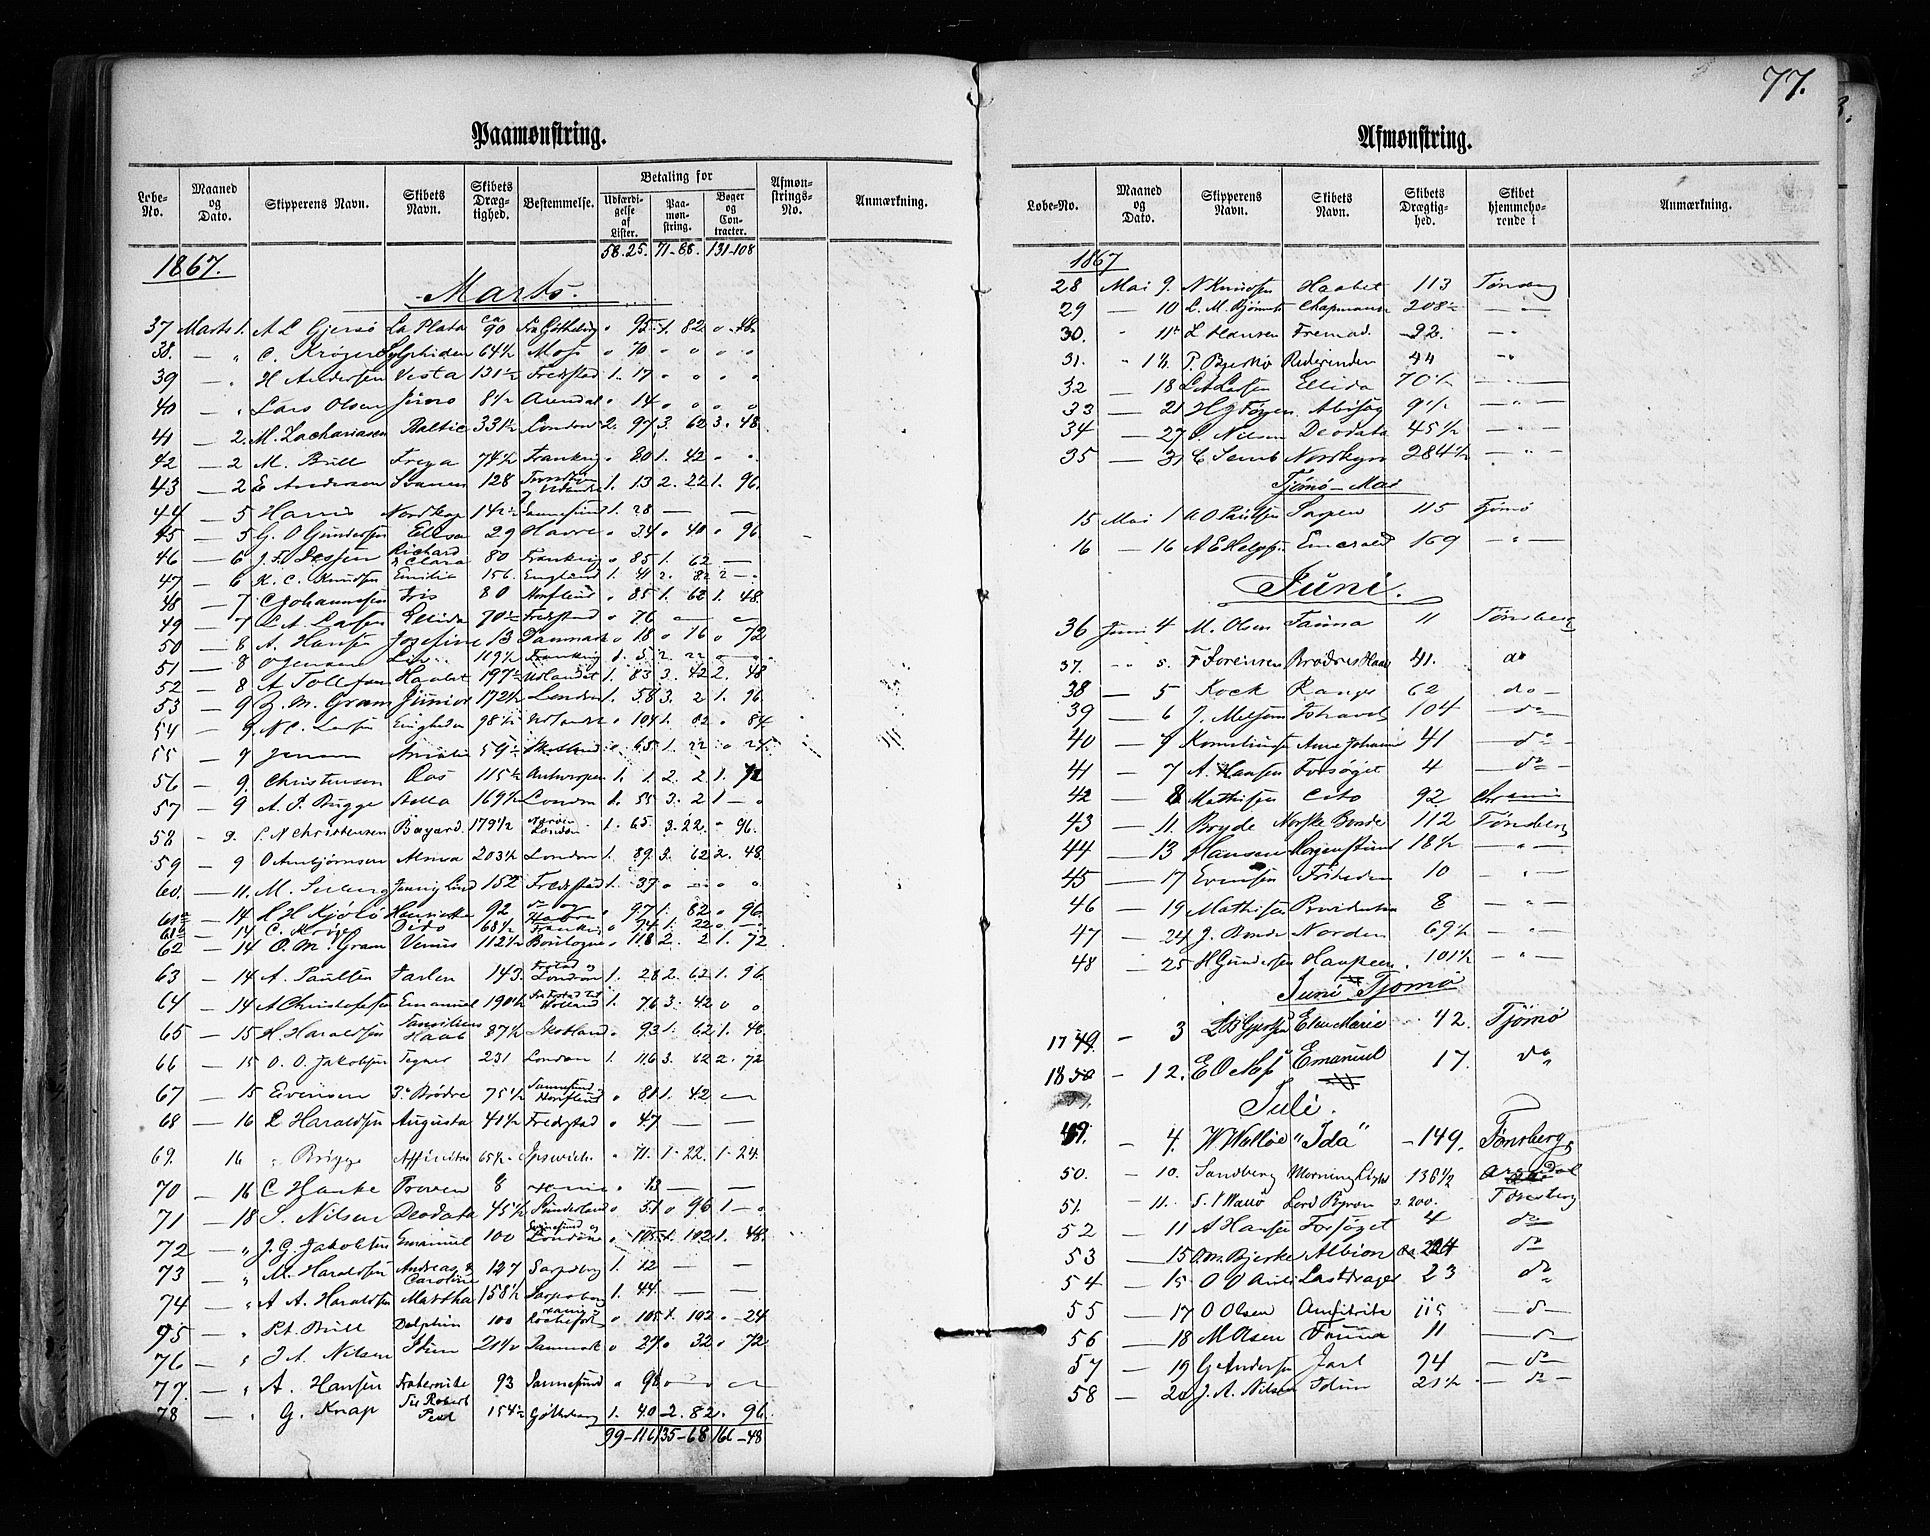 77.
Paamønstring.
Løbe-No. Maaned og Dato. Skipperens Navn. Skibets Navn. Skibets Dræg-tighed. Bestemmelse. Betaling for Udfærdi-gelse af Lister. Paa-møn-string. Bøger og Con-tracter. Afmøn-strings-No. Anmærkning.
58.25. 71-88. 131-108
1867.
Marts.
37 Marts 1. A L Gjersø La Plata ca 90 Fra Gøtheborg " 95 1. 82 " 48.
38. — " C. Krøger Sylphiden 64½ Moss " 70 " " " "
39 — " H Andersen Vesta 131½ Fredstad 1. 17 " " " "
40 — " Lars Olsen 8½ Arendal " 14 " " " "
41 — 2. M. Zachariasen Baltic 331½ London 2. 97 3. 62 3. 48.
42 — 2 M. Bull Freya 74½ Frankrig " 80 1. 42 " "
43 — 2 E Andersen Svanen 128 1. 13 2. 22 1. 96.
44 — 5 Harris Nordkap 142½ Sannesund 1. 28 — —
45 — 5 G. O Gundersen Elisa 29 Havre " 34 " 40 " 96.
46 — 6 J. F. Dessen Richard & Clara 80 Frankrig " 85 1. 62 —
47 — 6 H. C. Knudsen Emilie 156. England 1. 41 2. 82 2 — "
48 — 7 C Johannesen Iris 80 " 85 1. 62 1. 48.
49 — 7 L A Larsen Ellida 70½ Fredstad " 76 — —
50 — 8 A. Hansen Josefine 13 Danmark " 18 " 16 " 72
51 — 8 O Jensen 119½ Frankrig 1. 5 2. 22 " —
52 — 8 A Tollefsen Haabet 197½ Udlandet 1. 83 3. 42 2. 48
53 — 9 Z. M. Gram Junior 172½ London 1. 58 3. 2 1. 96
54 — 9. N C. Larsen Enigheden 98½ Udlandet " 104 1. 82 " 84
55 — 9 Jensen Amalie 59½ " 65 1. 22 " 24.
56 — 9. Christensen Oas 115½ Antwerpen 1. 1 2. 2 1. 72
57 — 9 A. F. Bugge Stella 169½ London 1. 55 3. 2 1 — "
58 — 9. P. N Christensen Bayard. 179½ London 1. 65. 3. 22. " 96.
59 — 9 O Arnbjørnsen Alma 203½ London 1. 89. 3. 62 2. 48.
60. — 11. M. Jenny Lind 152 Fredstad 1. 37 " — " "
61a — 14 H H Kjølø Henriette 92 do og Havre " 97 1. 82 " 96.
61b — 14 C. Dido 68½ Frankrig " 74 1. 22 " —
62 — 14 O. M. Gram Venus 112½ Boulogne " 118 2. 2 1. 72
63 — 14 A. Paulsen Jarlen 143. Frstad og London 1. 28 2. 62 1. 96.
64 — 14 A Christofersen Emanuel 190½ Fra Frstad til Holland 1. 76 3. 42 " "
65 — 15 H. Haraldsen Familiens Haab 87½ Skotland " 93 1. 62 1. 48.
66 — 15. O. O. Jakobsen Tegner 231 London 1. 116 3. 62 2. 72
67 — 15 Evensen 3 Brødre 75½ Sannesund " 81 1. 42 —
68 — 16 L Haraldsen Augusta 41½ Fredstad " 47 — —
69. 16 " Brigge Affinitas 65½ Ipswich " 71. 1. 22. 1. 24.
70 — 16 C Hanke Proven 8 " 13 — —
71 — 18 S. Nilsen Deodata 45½ Sunderland " 51 " 96 1 — "
72 — " J. G. Jakobsen Emanuel 100 Sannesund og London " 105 1. 102 1. 48.
73 — " M. Haraldsen Andreas & Caroline 127 Sarpsborg 1. 12 — —
74 — " A A. Haraldsen Martha 158½ Sarpsborg 1. 44. — —
75 — " Pet. Bull Delphin 100 Rochefort " 105 1. 102 " 24
76 — " J A. Nilsen Idun 21½ Danmark " 27 " 32 " 72
77. — " A. Hansen Fraternite 93 Sannesund " 91 " — " —
78 — " G. Knap Sir Robert Peel 154½ Gøtheborg 1. 40 2. 82 " 96
99-116 135-68 166-48
Afmønstring.
Løbe-No. Maaned og Dato. Skipperens Navn. Skibets Navn. Skibets Drægtig-hed. Skibet hjemmeho-rende i Anmærkning.
1867
28 Mai 9. N Knudsen Haabet 113 Tønsberg
29 10 L. M. Bjønnes Chapmann 208½ — " —
30. " 11 L Hansen Fremad 92. — " —
31. " P. Bjerkø Rederenden 44 — " —
32 — 18 L A Larsen Ellida 70½ — " —
33 — 21 H J Føyen Abisag 9½ — " —
34 — 27 S. Nilsen Deodata 45½ — " —
35 — 31 C Semb Nordkyn 284½ — " —
Tjømø - Mai
15 Mai 1 A O Paulsen Sarpen 115 Tjømø
16 — 16 A E Helgesen Emerald 169 — " —
Juni.
36 Juni 4 M. Olsen Fauna 11 Tønsberg
37. " 5. F Sørensen Brødres Haab 41. do
38 — 5 Kock Ranger 62 do —
39 — 6 J. Melsom Johanes 104 — do
40 — 7 Korneliussen Anne Johanne 41 — do
41 — 7 A. Hansen Forsøget 4 — do —
42 — 8 Mathisen Cito 92 Chrania
43 — 11. Bryde Norske Bonde 112 Tønsberg
44 — 13 Hansen Morgenstund 18½ — " —
45 — 17 Evensen Friheden 10 — " —
46 — 19 Mathisen Providentia 8 — " —
47 — 24 J. Bonde Norden 69½ — " —
48 — 25 H Gundersen Haapeen 101½ — " —
Juni Tjømø
17 49. — 3 L B Gjersøe Elen Marie 42. Tjømø
18 50 — 12. E O Næs Emanuel 17. do
Juli.
49. — 4. W Walløe "Ida" 149. Tønsberg
50. — 10. Sandberg Morning Light 136½ Arendal
51. 11. S. I Wallø Lord Byron 200. Tønsberg
52 — 11 A Hansen Forsøget 4 do
53 — 15 O M. Bjerke Albion ca 224 do
54 — 15 O O Lastdrager 23 do
55 — 17 O Olsen Amfitrite 115 — do —
56 — 18 M Olsen Fauna 11 — do —
57 — 19 G Andersen Jarl 74 — do —
58 — 20 J. A. Nilsen Idun 21½ — do —